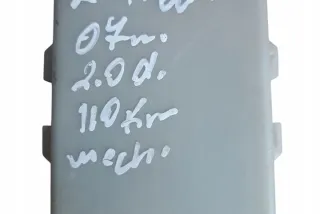 07r.
2.0 d.
110 km
mech.